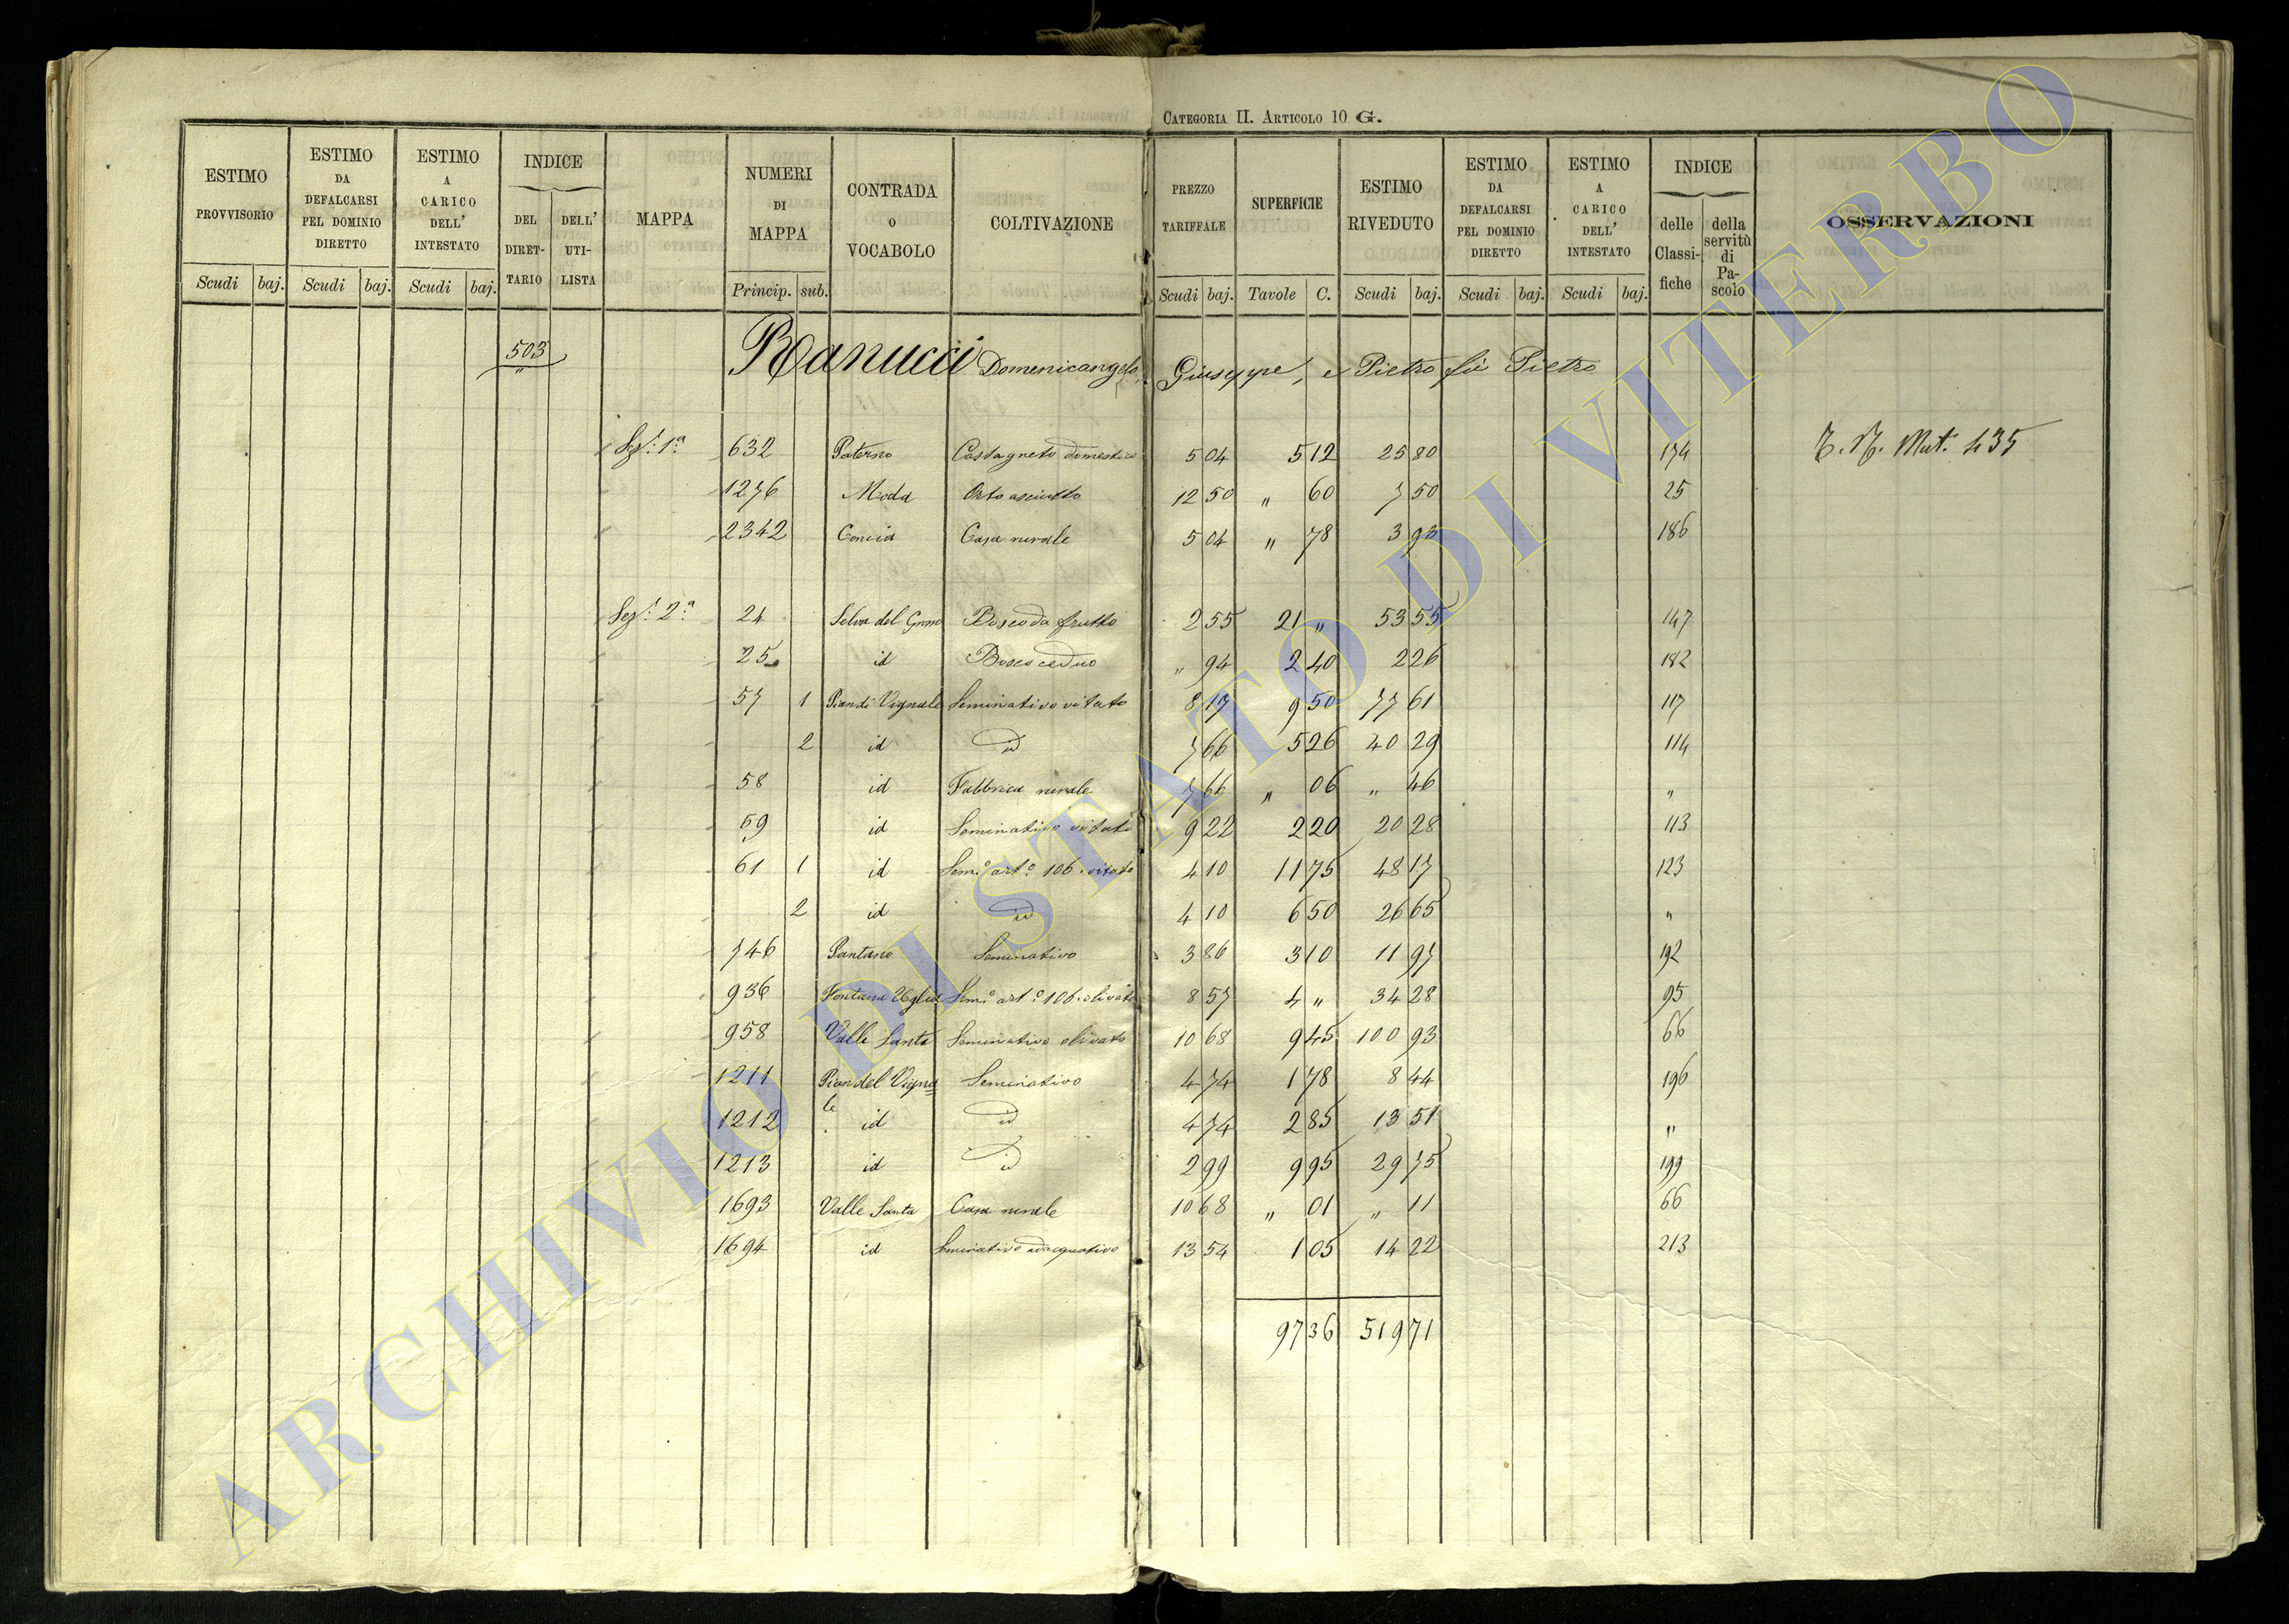 CATEGORIA II. ARTICOLO 10 G.
ESTIMO PROVVISORIO Scudi baj. | ESTIMO DA DEFALCARSI PEL DOMINIO DIRETTO Scudi baj. | ESTIMO A CARICO DELL' INTESTATO Scudi baj. | INDICE DEL DIRET-TARIO DELL' UTI-LISTA | MAPPA | NUMERI DI MAPPA Princip. sub. | CONTRADA o VOCABOLO | COLTIVAZIONE | PREZZO TARIFFALE Scudi baj. | SUPERFICIE Tavole C. | ESTIMO RIVEDUTO Scudi baj. | ESTIMO DA DEFALCARSI PEL DOMINIO DIRETTO Scudi baj. | ESTIMO A CARICO DELL' INTESTATO Scudi baj. | INDICE delle Classi-fiche della servitù di Pa-scolo | OSSERVAZIONI
503 Ranucci Domenicangelo, Giuseppe, e Pietro fù Pietro
"
Sez.e 1a 632 Paterno Castagneto domestico 5 04 5 12 25 80 174 T. N. Mut. 435
1276 Moda Orto asciutto 12 50 " 60 7 50 25
2342 Concia Casa rurale 5 04 " 78 3 93 186
Sez.e 2a 24 Selva del Grosso Bosco da frutto 2 55 21 " 53 55 147
25 id Bosco ceduo " 94 2 40 2 26 182
57 1 Pian di Vignale Seminativo vitato 8 17 9 50 77 61 117
2 id id 7 66 5 26 40 29 114
58 id Fabbrica rurale 7 66 " 06 " 46 "
59 id Seminativo vitato 9 22 2 20 20 28 113
61 1 id Sem.o art.o 106 vitato 4 10 11 75 48 17 123
2 id id 4 10 6 50 26 65 "
746 Pantano Seminativo 3 86 3 10 11 97 192
936 Fontana Sem.o art.o 106 olivato 8 57 4 " 34 28 95
958 Valle Santa Seminativo olivato 10 68 9 45 100 93 66
1211 Pian del Vigna= Seminativo 4 74 1 78 8 44 196
le
1212 id id 4 74 2 85 13 51 "
1213 id id 2 99 9 95 29 75 199
1693 Valle Santa Casa rurale 10 68 " 01 " 11 66
1694 id Seminativo adacquativo 13 54 1 05 14 22 213
97 36 519 71
ARCHIVIO DI STATO DI VITERBO